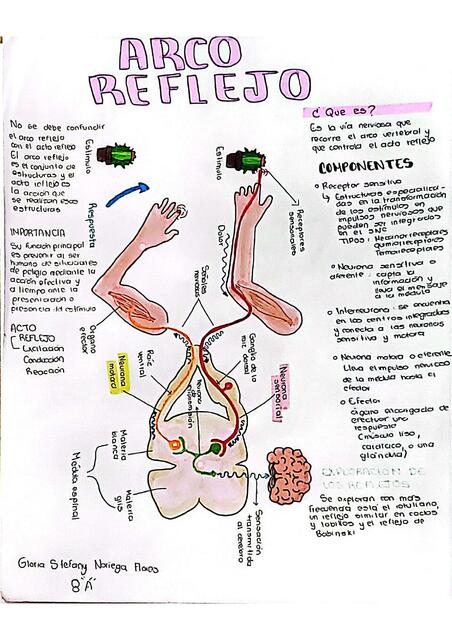 ARCO
REFLEJO
No se debe confundir
el arco reflejo
con el acto reflejo
El arco reflejo
es el conjunto de
estructuras y el
acto reflejo es
la acción que
se realizan esas
estructuras
IMPORTANCIA
Su función principal
es prevenir al ser
humano de situaciones
de peligro mediante la
acción efectiva y
a tiempo ante la
presentación o
presencia del estímulo
ACTO
REFLEJO
Excitación
Conducción
Reacción
Estímulo
Respuesta
Estímulo
Dolor
Receptores
sensoriales
Señales
nerviosas
Órgano
efector
Ganglio de la
raíz dorsal
Raíz
ventral
Neurona
motora
Neurona
sensorial
Neurona
Materia
blanca
Materia
gris
Médula espinal
Sensación
transmitida
al cerebro
¿Que es?
Es la vía nerviosa que
recorre el arco vertebral y
que controla el acto reflejo
COMPONENTES
Receptor sensitivo
Estructuras especializa-
das en la transformación
de los estímulos en
impulsos nerviosos que
pueden ser integrados
en el SNC
TIPOS:
quimiorreceptores
Termorreceptores
Neurona sensitiva o
aferente: capta la
información y
lleva el mensaje
a la médula
Interneurona: se encuentra
en los centros integradores
y conecta a las neuronas
sensitiva y motora
Neurona motora o eferente
Lleva el impulso nervioso
de la médula hasta el
efector
Efector
órgano encargado de
efectuar una
respuesta
(músculo liso,
cardíaco, o una
glándula)
EXPLORACION DE
LOS REFLEJOS
Se exploran con más
frecuencia está el rotuliano,
un reflejo similar en codos
y tobillos y el reflejo de
Babinski
Gloria Stefany Noriega Flores
8"A"